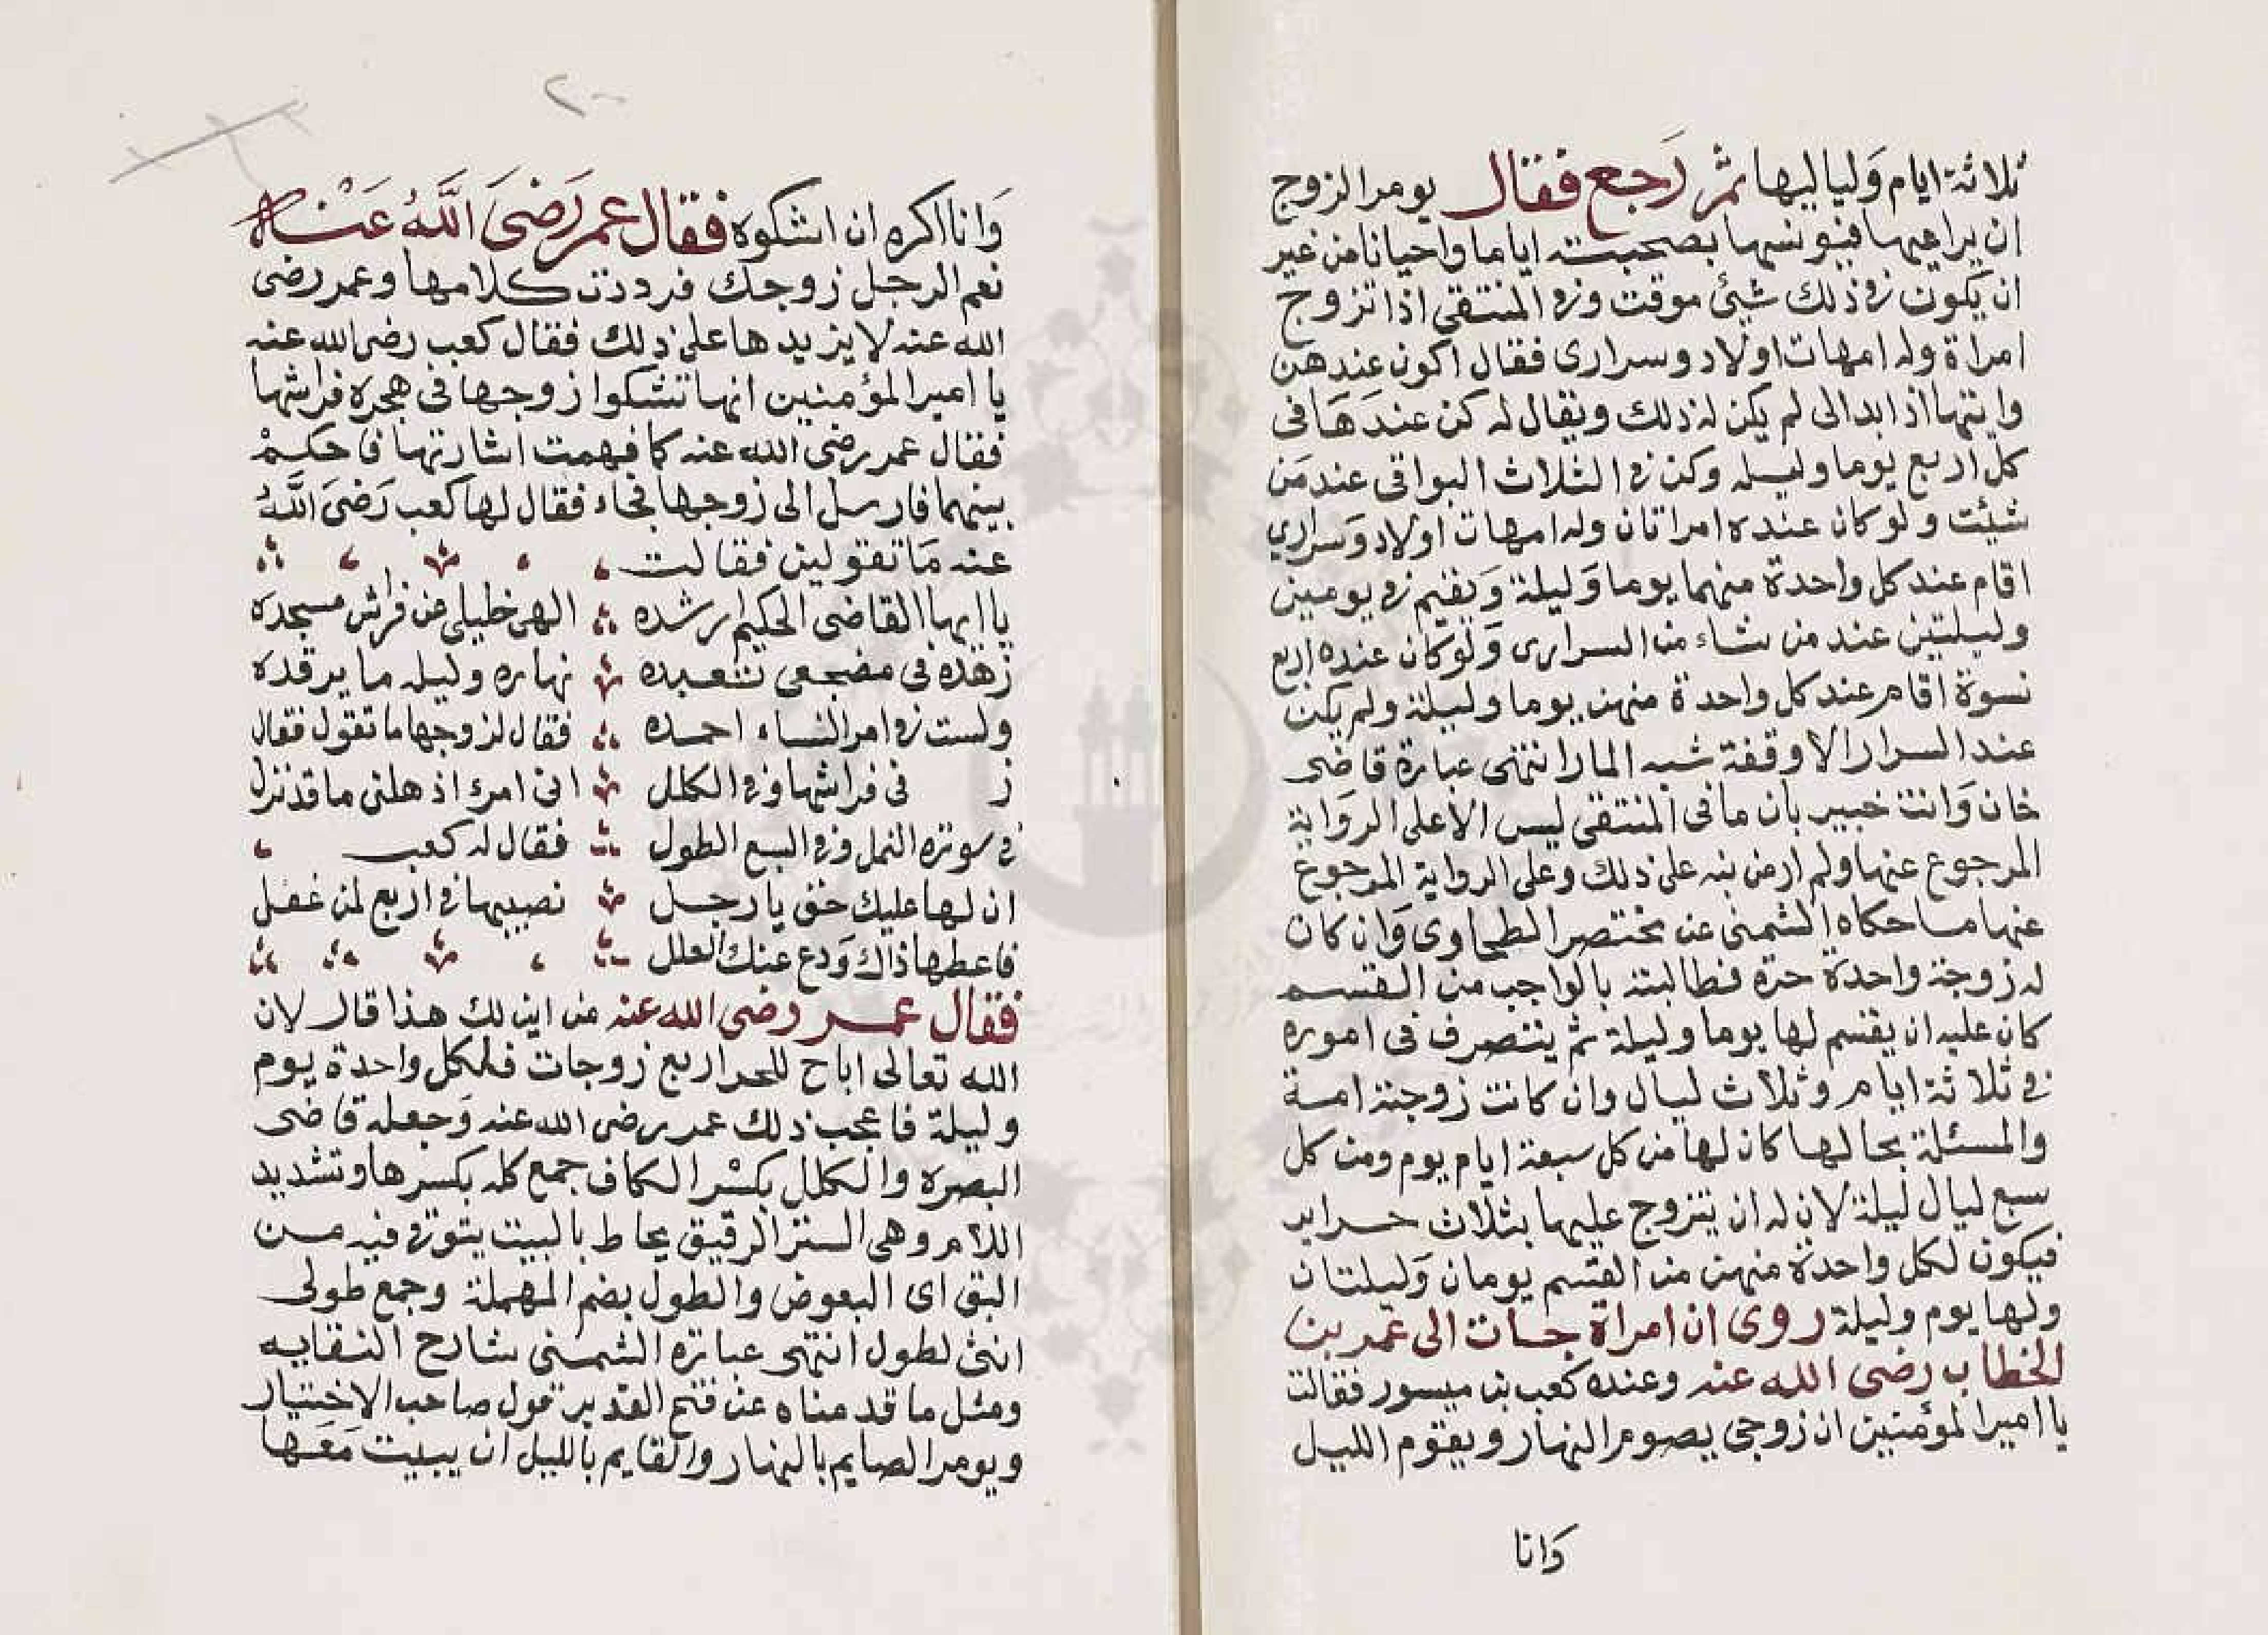 ثلاثة ايام وَلياليها ثم رَجع فقال يومر الزوج
ان يراعيها فيونسها بصحبته اياما واحيانا من غير
ان يكون في ذلك شيئ موقت وفي المنتقي اذا تزوج
امراة وله امهات اولاد وسراري فقال اكون عندهن
واتيها اذا بدالى لم يكن له ذلك ويقال له كن عندَهَا فى
كل اربع يوما وليله وكن في الثلاث البواقى عندمَن
شيئت ولوكان عنده امراتان وله امهات اولاد وَسراري
اقام عند كل واحدة منهما يوما وَليلة وَيقيم في يومين
وليلتين عند من شاء من السرارى وَلوكان عنده اربع
نسوة اقام عند كل واحدة منهن يوما وليلة ولم يكن
عند السرار الا وقفة شبه المار انتهى عبارة قاضى
خان وَانت خبير بان ما فى المنتقى ليس الا على الروَاية
المرجوع عنها ولم ار من نبه على ذلك وعلى الرواية المرجوع
عنها ما حكاه الشمنى عن مختصر الطحاوى وَان كان
له زوجة واحدة حرة فطالبته بالواجب من القسم
كان عليه ان يقسم لها يوما وليلة ثم يتصرف فى اموره
في ثلاثة ايام وثلاث ليال وان كانت زوجته امة
والمسئلة بحالها كان لها من كل سبعة ايام يوم ومن كل
سبع ليال ليلة لان له ان يتزوج عليها بثلاث حراير
فيكون لكل واحدة منهن من القسم يومان وَليلتان
ولها يوم وليلة روى ان امراة جات الى عمر بن
الخطاب رضى الله عنه وعنده كعب بن ميسور فقالت
يا امير المؤمنين ان زوجى يصوم النهار ويقوم الليل
وَانا
وَانا اكره ان اشكوه فقال عمر رَضىَ اللَّهُ عَنه
نعم الرجل زوجك فرددت كلامها وعمر رضى
الله عنه لا يزيدها على ذلك فقال كعب رضى الله عنه
يا امير المؤمنين انها تشكوا زوجها فى هجره فراشها
فقال عمر رضى الله عنه كما فهمت اشارتها فاحكمْ
بينهما فارسل الى زوجها فجاء فقال لها كعب رَضىَ اللَّهُ
عنه مَا تقولين فقالت
يا ايها القاضى الحكيم رشده الهى خليلى عن فراش مسجده
زهده فى مضجعى تعبده نهاره وليله ما يرقده
ولست في امر النساء احمده فقال لزوجها ما تقول فقال
ز فى فراشها وفي الكلل انى امرؤ اذهلنى ما قد نزل
في سورة النمل وفي السبع الطول فقال له كعب
ان لها عليك حق يا رجل نصيبها في اربع لمن عقل
فاعطها ذاك وَدع عنك العلل
فقال عمر رضى الله عنه من اين لك هذا قال لان
الله تعالى اباح للحر اربع زوجات فلكل واحدة يوم
وليلة فاعجب ذلك عمر رضى الله عنه وَجعله قاضى
البصرة والكلل بكسْر الكاف جمع كله بكسرها وتشديد
اللام وهى الستر الرقيق يحاط بالبيت يتوقى فيه من
البق اى البعوض والطول بضم المهملة وجمع طولى
انثى لطول انتهى عبارة الشمنى شارح النقايه
ومثل ما قدمناه عن فتح القدير قول صاحب الاختيار
ويومر الصايم بالنهار والقايم بالليل ان يبيت مَعَها